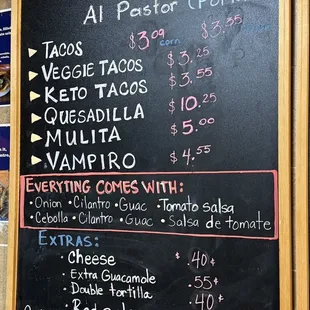 Al Pastor
TACOS $3.09 corn $3.35
VEGGIE TACOS $3.25
KETO TACOS $3.55
QUESADILLA $10.25
MULITA $5.00
VAMPIRO $4.55
EVERYTING COMES WITH:
• Onion • Cilantro • Guac • Tomato salsa
• Cebolla • Cilantro • Guac • Salsa de tomate
EXTRAS:
• Cheese $ .40¢
• Extra Guacamole .55¢
• Double tortilla .40¢